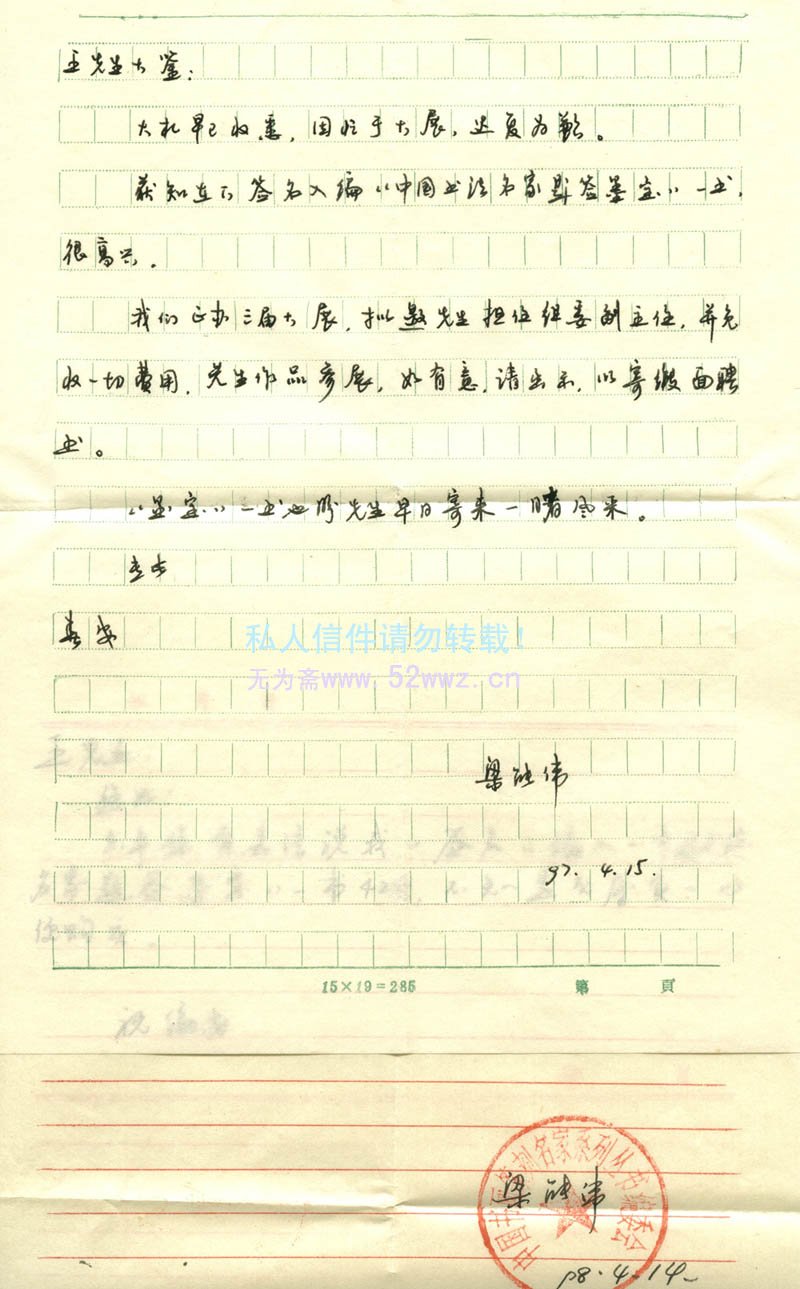 王先生大鉴：
大札早已收悉，因忙于大展，迟复为歉。
获知在下签名入编《中国书法名家题签墨宝》一书，
很高兴。
我们正办三届大展，拟邀先生担任组委副主任，并免
收一切费用，先生作品参展，如有意，请出示，以寄缎面聘
书。
《墨宝》一书也盼先生早日寄来一睹风采。
春安
私人信件请勿转载！
无为斋www.52wwz.cn
97.4.15.
15×19=285
第 頁
名家系列丛书编委会
98.4.14